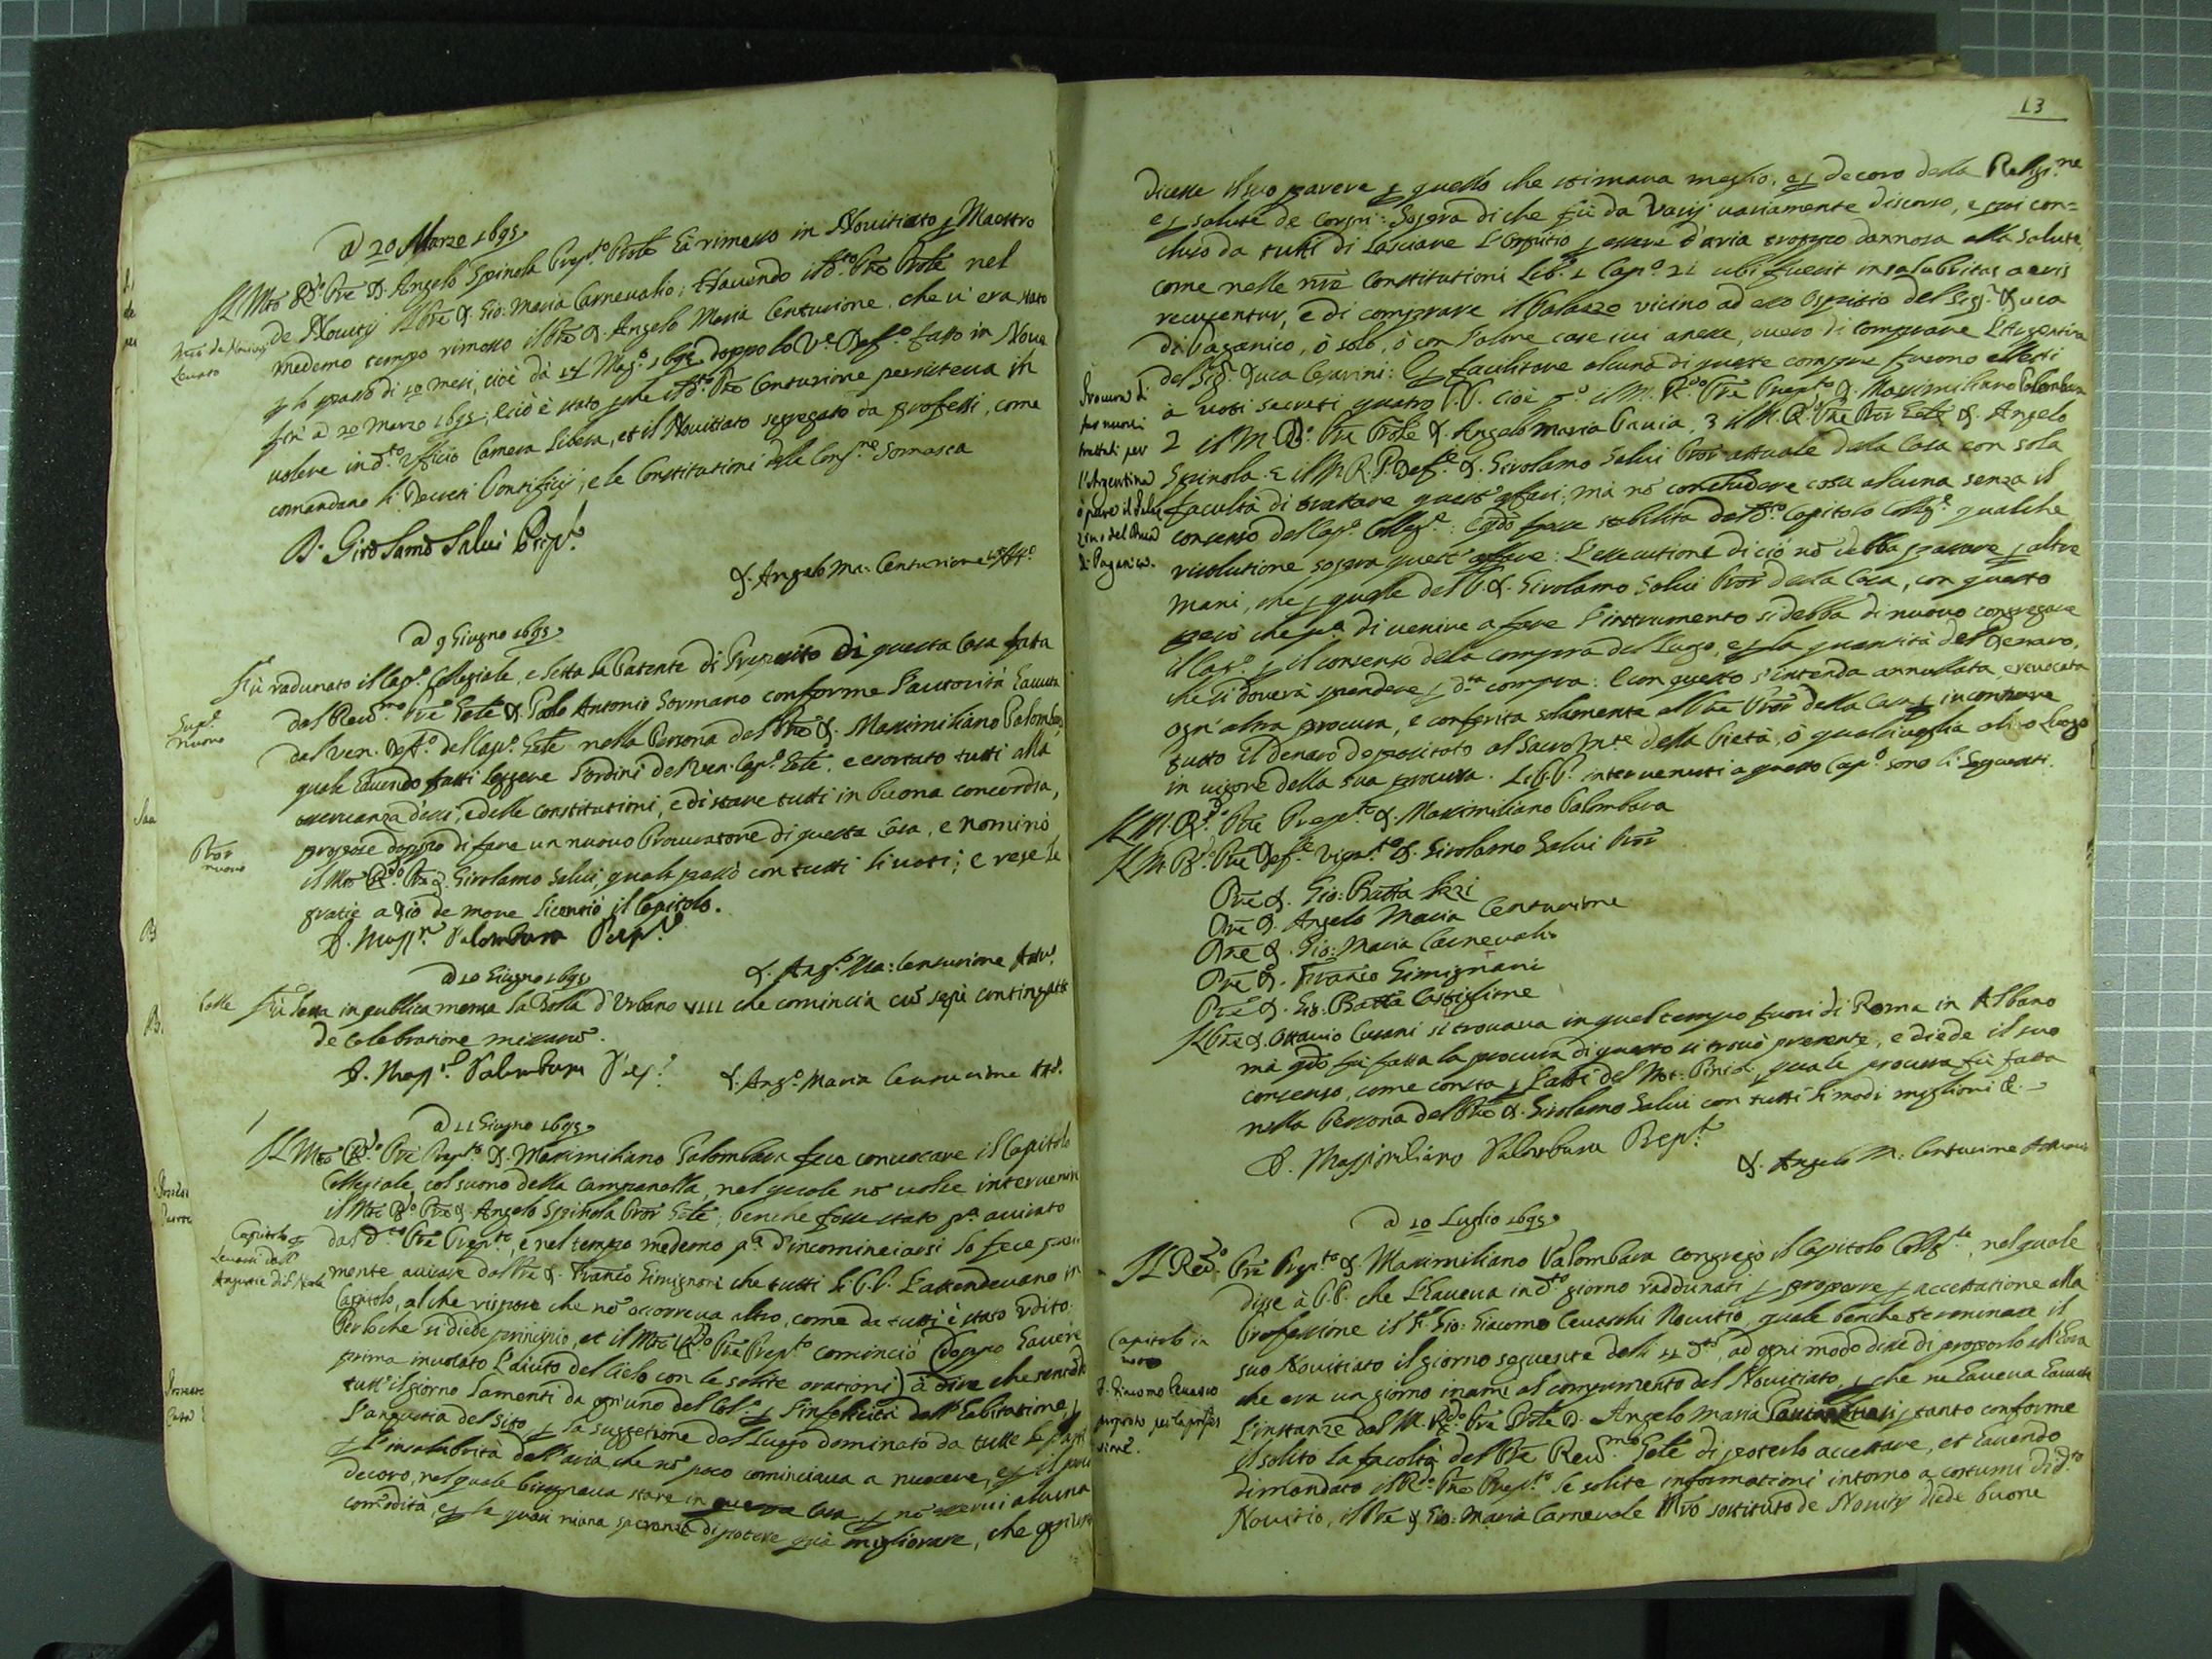 A 20 Marzo 1695
Il Mto Rdo Pre D. Angelo Spinola Prepto Prole hà rimesso in Novitiato p Maestro
de Novitij il Pre D. Gio: Maria Carnevalio; Havendo il dto Pre Prole nel
medemo tempo rimosso il Pre D. Angelo Maria Centurione, che vi era stato
p lo spatio di 10 mesi, cioè dà 14 Mago 1694 doppo lo Ve Defo fatto in
fin' a 20 Marzo 1695; e ciò è stato, che il dto Pre Centurione persisteva in
volere in dto Ufficio Camera libera, et il Novitiato segregato da professi, come
comandano li Decreti Pontificij, e le Constitutioni della Congne Somasca
Levato
D. Girolamo Salvi Prepto
D. Angelo Ma: Centurione Atto
A 9 Giugno 1695
Fù radunato il Capo Collegiale, e letta la Patente di Preposito di questa Casa fatta
dal Revmo Pre Gnle D. Paolo Antonio Sormano conforme l'autorità havuta
dal Ven. Defo del Capo Gnle nella Persona del Pre D. Massimiliano Palombara
quale havendo fatti leggere l'ordini del Ven. Capo Gnle, e esortato tutti alla
osservanza d'essi, e delle constitutioni, e di stare tutti in buona concordia,
propose doppo di fare un nuovo Procuratore di questa Casa, e nominò
il Mto Rdo Pre D. Girolamo Salvi, quale passò con tutti li voti; e rese le
gratie a Dio de more licentiò il Capitolo.
nuovo
Pror
nuovo
D. Massno Palombara Prepto
D. Ango Ma: Centurione Attro
A 10 Giugno 1695
Bolle
Fù letta in publica mensa la Bolla d'Urbano VIII che comincia cu sepe contingat
de celebratione missarum.
D. Massno Palombara Prepo
D. Ango Maria Centurione Atto
A 11 Giugno 1695
Il Mto Rdo Pre Prepto D. Massimiliano Palombara fece convocare il Capitolo
Collegiale col suono della Campanella, nel quale no volse intervenire
il Mto Rdo Pre D. Angelo Spinola Pror Gnle, benche fosse stato pa avvisato
dal dto Pre Prepto, e nel tempo medemo pa d'incominciarsi lo fece
mente avvisare dal Pre D. Franco Gimignani che tutti li P.P. l'attendevano in
Capitolo, al che rispose che no occorreva altro, come da tutti è stato udito.
Perloche si diede principio, et il Mto Rdo Pre Prepto cominciò (doppo havere
prima invocato l'aiuto del Cielo con le solite orationi) à dire che
tutt'il giorno lamenti da ogn'uno del p l'infelicità dell'habitatione, p
l'angustia del sito, p la suggetione del luogo dominato da tutte le parti
p l'insalubrità dell'aria, che no poco cominciava a nuocere, e p il poco
decoro, nel quale bisognava stare in questa Casa, p no esservi alcuna
comodità, e p la quasi niuna speranza di potere quà migliorare, che
Capitolo
13
dicesse il suo parere p quello che stimava meglio, e p decoro della Religne
e p salute de Corpi: Sopra di che fù da varij variamente discorso, e poi con=
chiuso da tutti di lasciare l'Ospitio p essere d'aria troppo dannosa alla salute,
come nelle nre Constitutioni Libo 1 Capo 21 ubi fuerit insalubritas aeris
recusentur, e di comprare il Palazzo vicino ad esso Ospitio del Sigr Duca
di Paganico, ò solo, ò con l'altre case ivi anesse, overo di comprare l'Argentina
del Sigr Duca Cesarini: E p facilitare alcuna di queste compre furono eletti
à voti secreti quatro P.P. cioè po il M. Rdo Pre Prepto D. Massimiliano Palombara
2 il M. Rdo Pre Prole D. Angelo Maria Pavia, 3 il M. Rdo Pre Pror Gnle D. Angelo
Spinola. E il M.R.P. Defe D. Girolamo Salvi Pror attuale della Casa con sola
facultà di trattare quest'affari; mà no concludere cosa alcuna senza il
consenso del Capo College: fosse stabilita del dto Capitolo Collge qualche
risolutione sopra quest'affare: L'essecutione di ciò no debba passare p altre
mani, che p quelle del P. D. Girolamo Salvi Pror della Casa, con questo
però che pa di venire a fare l'instrumento si debba di nuovo congregare
il Capo p il consenso della compra del luogo, e p la quantità del denaro,
che si doverà spendere p dta compra: E con questo s'intenda annullata, e revocata
ogn'altra procura, e conferita solamente al Pre Pror della Casa p incontrare
tutto il denaro depositato al Sacro Mte della Pietà, ò qualsivoglia altro luogo
in vigore della sua procura. Li P.P. intervenuti a questo Capo sono li seguenti.
Procura di
trattati per
l'Argentina
ò pure il Palaz
zino del Duca
di Paganico.
Il M. Rdo Pre Prepto D. Massimiliano Palombara
Il M. Rdo Pre Defe D. Girolamo Salvi Pror
Pre D. Gio: Batta
Pre D. Angelo Maria Centurione
Pre D. Gio: Maria Carnevali
Pre D. Franco Gimignani
Pre D. Gio: Batta Castiglione
Il Pre D. Ottavio Cusani si trovava in quel tempo fuori di Roma in Albano
mà qdo fù fatta la procura di questo si trovò presente, e diede il suo
consenso, come consta p l'atti del Not: quale procura fù fatta
nella Persona del Pre D. Girolamo Salvi con tutti li modi migliori &.
D. Massimiliano Palombara Prepto
D. Angelo M: Centurione
A 10 Luglio 1695
Il Revdo Pre Prepto D. Massimiliano Palombara congregò il Capitolo Collgle, nel quale
disse à P.P. che l'haveva in dto giorno raddunati p proporre p accettatione alla
Professione il Fr. Gio: Giacomo Novitio, quale benche terminasse il
suo Novitiato il giorno seguente delli 11 dto, ad ogni modo disse di proporlo
che era un giorno inanzi al compimento del Novitiato, p che ne haveva havute
l'instanze dal M. Rdo Pre Prole D. Angelo Maria tanto conforme
il solito la facoltà del Pre Revmo Gnle di poterlo accettare, et havendo
dimandato il Rdo Pre Prepto le solite informationi intorno a costumi di dto
Novitio, il Pre D. Gio: Maria Carnevale Mro sostituto de Novitij diede buone
Capitolo in
proposto per la profes
sione.